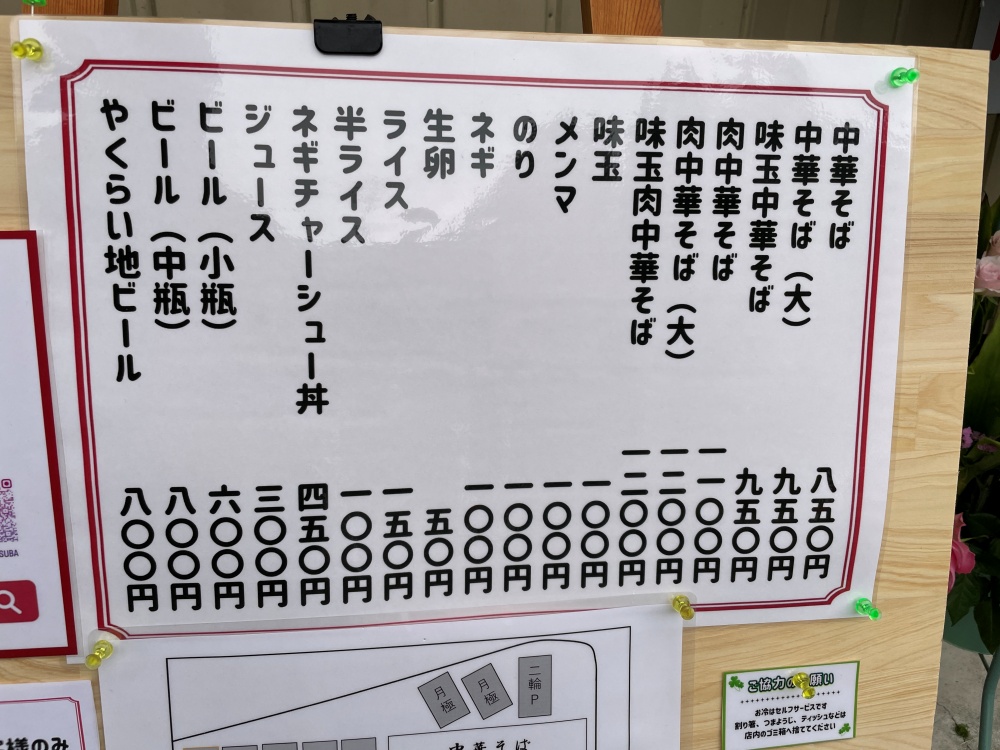 中華そば 八五〇円
中華そば（大） 九五〇円
味玉中華そば 九五〇円
肉中華そば 一一〇〇円
肉中華そば（大） 一二〇〇円
味玉肉中華そば 一二〇〇円
味玉 一〇〇円
メンマ 一〇〇円
のり 一〇〇円
ネギ 一〇〇円
生卵 五〇円
ライス 一五〇円
半ライス 一〇〇円
ネギチャーシュー丼 四五〇円
ジュース 三〇〇円
ビール（小瓶） 六〇〇円
ビール（中瓶） 八〇〇円
やくらい地ビール 八〇〇円
SUBA
様のみ
月極
月極
二輪P
中華そば
ご協力の願い
お冷はセルフサービスです
割り箸、つまようじ、ティッシュなどは
店内のゴミ箱へ捨ててください